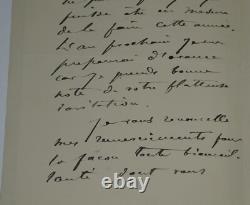 puisse être en mesure
de le faire cette année.
L'an prochain je me
préparerai d'avance
car je prends bonne
note de votre flatteuse
invitation.
Je vous renouvelle
mes remerciements pour
la façon toute bienveil-
lante dont vous